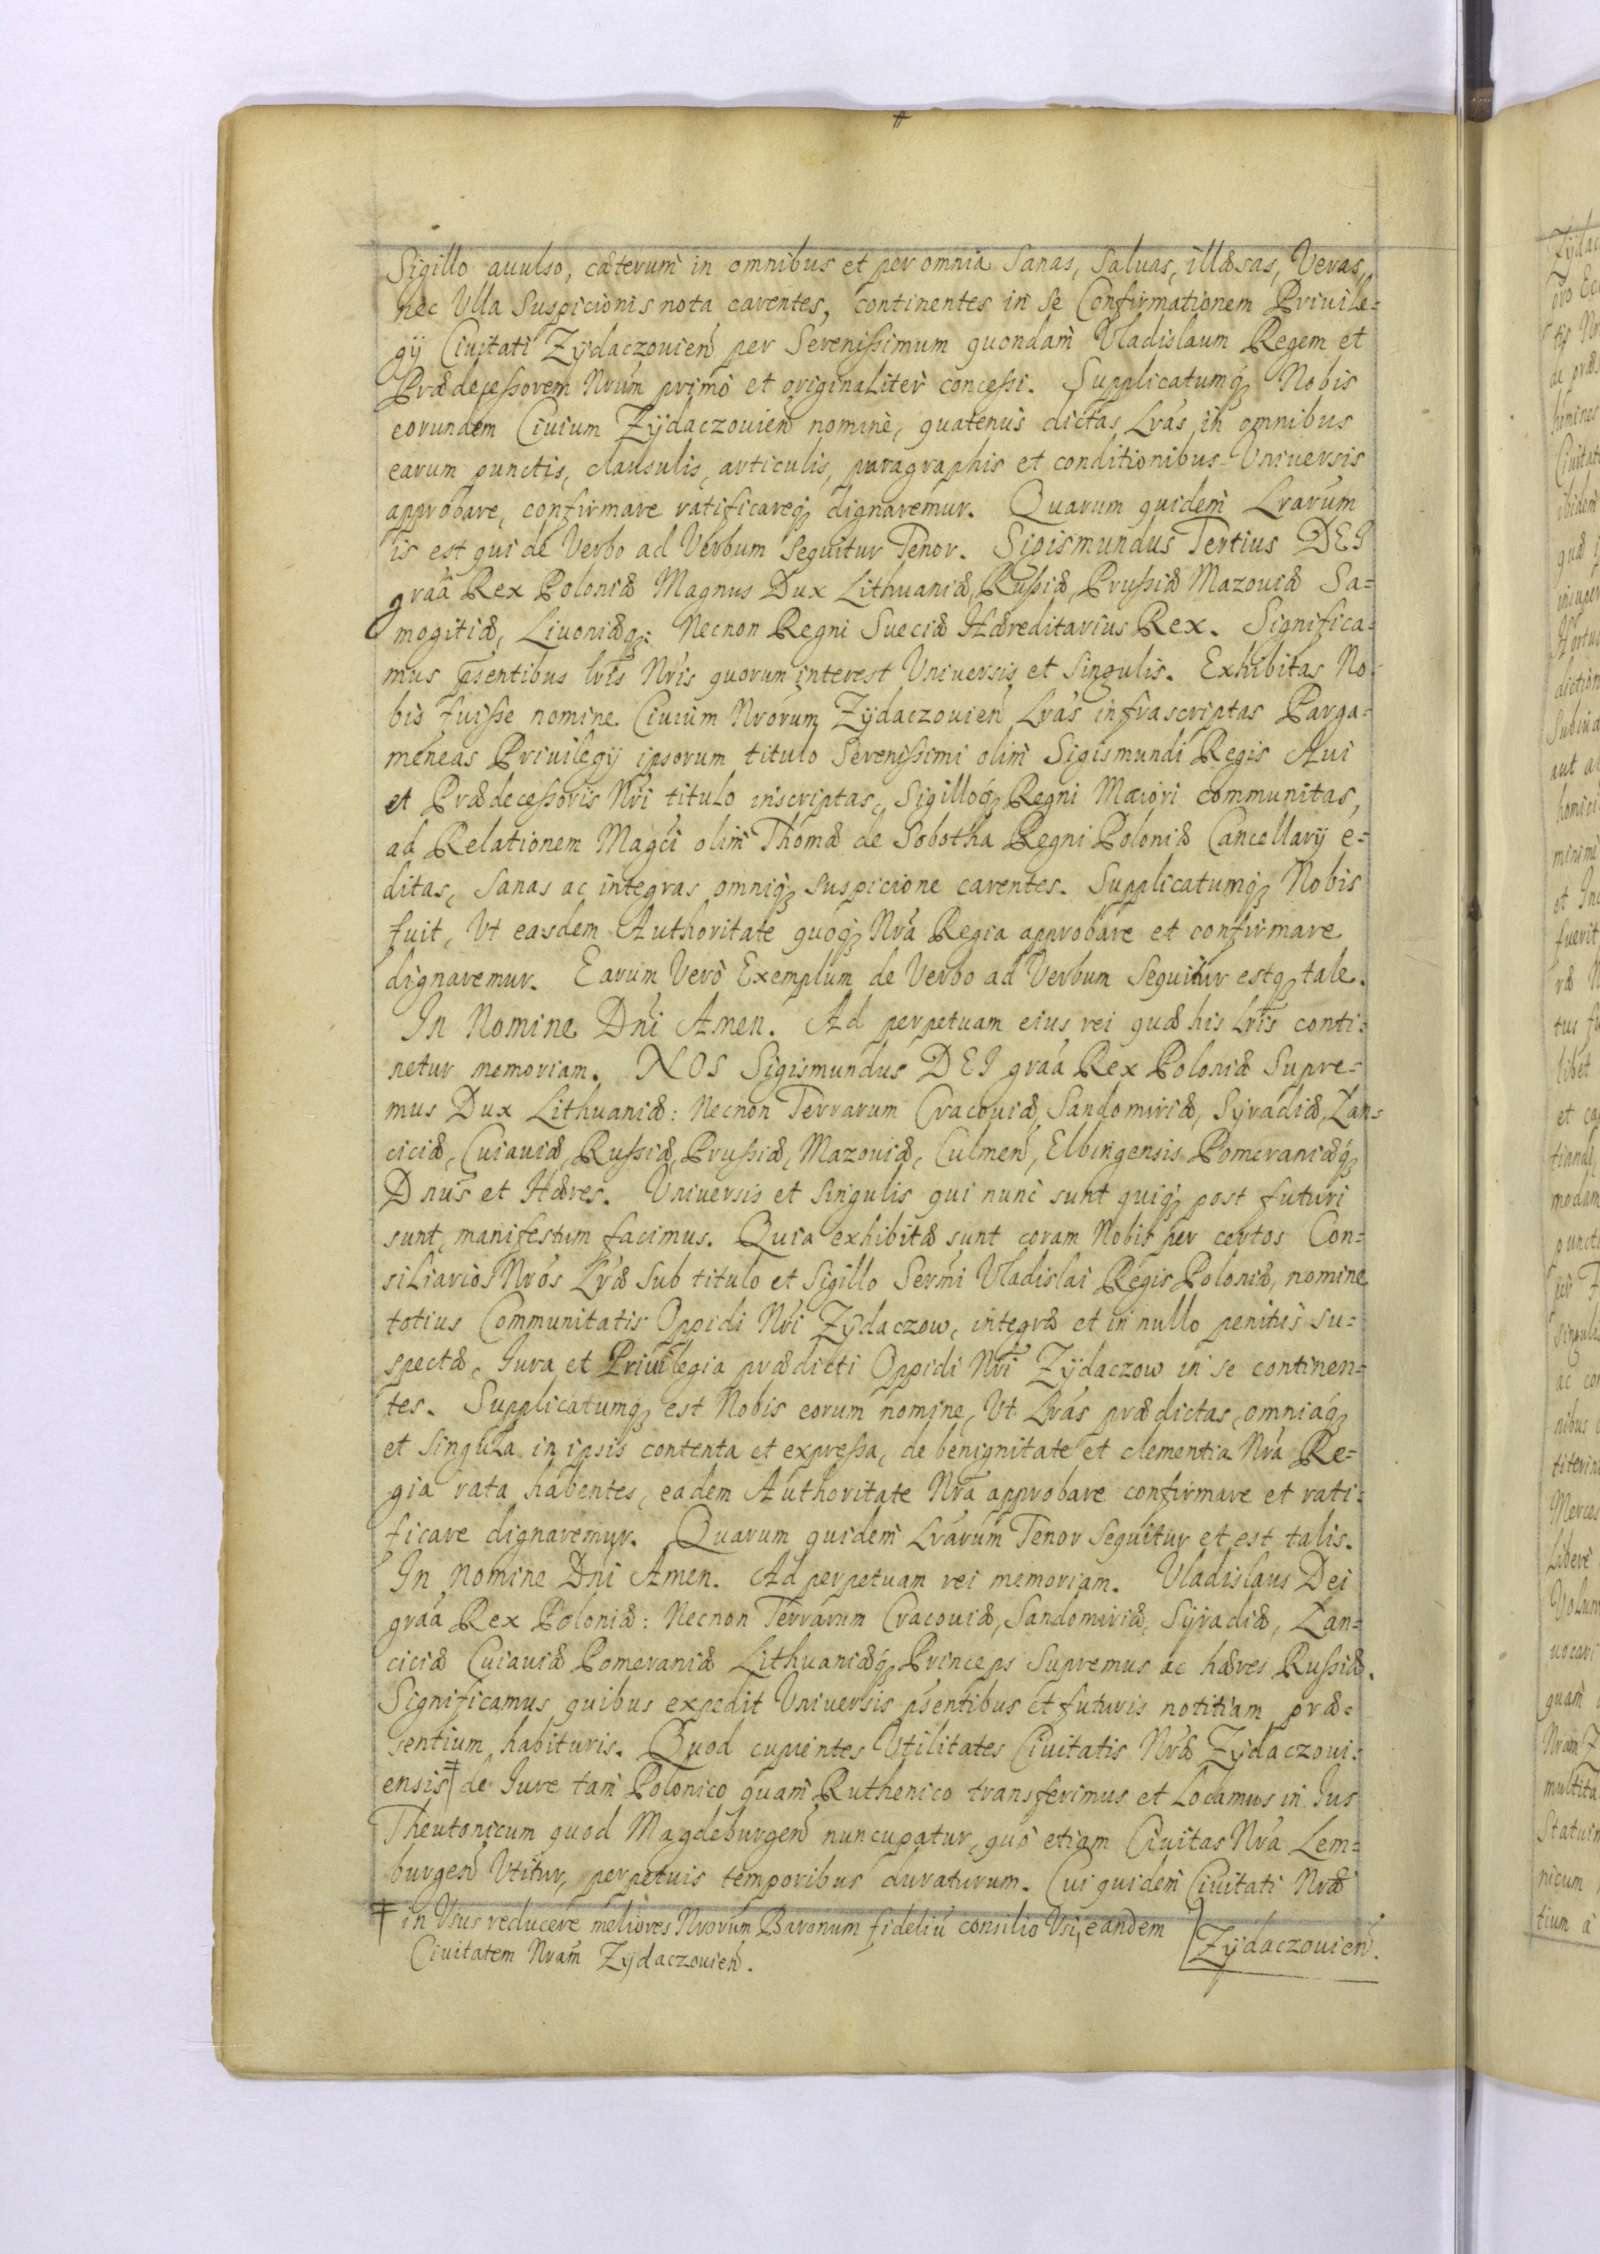 Sigillo auulso, cæterum in omnibus et per omnia sanas, saluas, illæsas, Veras,
nec Vlla suspicionis nota carentes, continentes in se Confirmationem Priuile-
gÿ Ciuitati Zÿdaczouien per Serenißimum quondam Vladislaum Regem et
Prædeceßorem Nrum primo et originaliter conceßi. Supplicatumq; Nobis
eorundem Ciuium Zÿdaczouien nomine, quatenus dictas Lras in omnibus
earum punctis, clausulis, articulis, paragraphis et conditionibus Vniuersis
approbare, confirmare ratificareq; dignaremur. Quarum quidem Lrarum
is est qui de Verbo ad Verbum sequitur Tenor. Sigismundus Tertius DEI
graâ Rex Poloniæ Magnus Dux Lithuaniæ, Rußiæ, Prußiæ Mazouiæ Sa-
mogitiæ, Liuoniæq: Necnon Regni Sueciæ Hæreditarius Rex. Significa-
mus psentibus lris Nris quorum interest Vniuersis et singulis. Exhibitas No-
bis fuiße nomine Ciuium Nrorum Zÿdaczouien Lras infrascriptas Parga-
meneas Priuilegÿ ipsorum titulo Serenißimi olim Sigismundi Regis Aui
et Prædeceßoris Nri titulo inscriptas, Sigilloq; Regni Maiori communitas,
ad Relationem Magci olim Thomæ de Sobotha Regni Poloniæ Cancellarÿ e-
ditas, sanas ac integras omniq; suspicione carentes. Supplicatumq; Nobis
fuit, Vt easdem Authoritate quoq; Nra Regia approbare et confirmare
dignaremur. Earum Vero Exemplum de Verbo ad Verbum sequitur estq; tale.
In Nomine Dni Amen. Ad perpetuam eius rei quæ his Lris conti-
netur memoriam. NOS Sigismundus DEI graâ Rex Poloniæ Supre-
mus Dux Lithuaniæ: Necnon Terrarum Cracouiæ, Sandomiriæ, Sÿradiæ, Lan-
ciciæ, Cuiauiæ, Rußiæ, Prußiæ, Mazouiæ, Culmen, Elbingensis Pomeraniæq;
Dnus et Hæres. Vniuersis et singulis qui nunc sunt quiq; post futuri
sunt, manifestum facimus. Quia exhibitæ sunt coram Nobis per certos Con-
siliarios Nros Lræ sub titulo et Sigillo Sermi Vladislai Regis Poloniæ, nomine
totius Communitatis Oppidi Nri Zÿdaczow, integræ et in nullo penitus su-
spectæ, Iura et Priuilegia prædicti Oppidi Nri Zÿdaczow in se continen-
tes. Supplicatumq; est Nobis eorum nomine, Vt Lras prædictas, omniaq;
et singula in ipsis contenta et expreßa, de benignitate et clementia Nra Re-
gia rata habentes, eadem Authoritate Nra approbare confirmare et rati-
ficare dignaremur. Quarum quidem Lrarum Tenor sequitur et est talis.
In Nomine Dni Amen. Ad perpetuam rei memoriam. Vladislaus Dei
graâ Rex Poloniæ: Necnon Terrarum Cracouiæ, Sandomiriæ, Sÿradiæ, Lan-
ciciæ Cuiauiæ Pomeraniæ Lithuaniæq; Princeps Supremus ac hæres Rußiæ.
Significamus quibus expedit Vniuersis psentibus et futuris notitiam præ-
sentium habituris. Quod cupientes Vtilitates Ciuitatis Nræ Zÿdaczoui-
ensis ‡ de Iure tam Polonico quam Ruthenico transferimus et Locamus in Ius
Theutonicum quod Magdeburgen nuncupatur, quo etiam Ciuitas Nra Lem-
burgen Vtitur, perpetuis temporibus duraturum. Cui quidem Ciuitati Nræ
‡ in Vsus reducere meliores Nrorum Baronum fideliu consilio Vsi, eandem
Ciuitatem Nram Zÿdaczouien.
Zÿdaczouien.